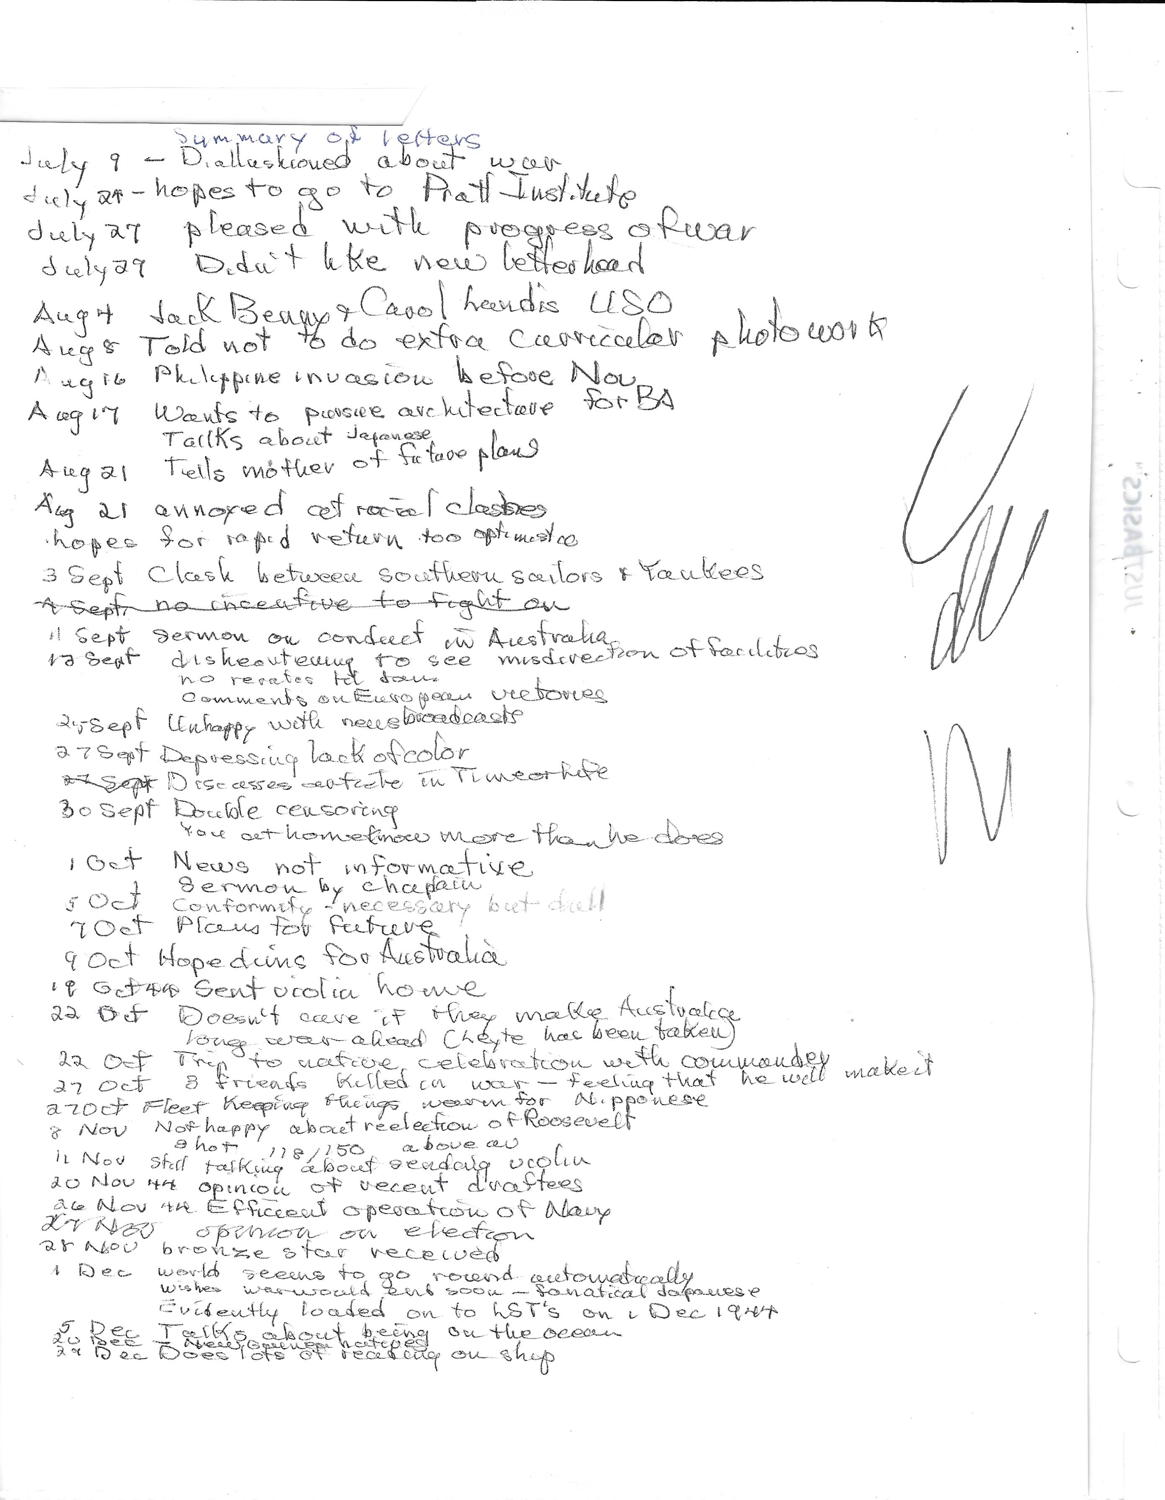 Summary of letters
July 9 - Disallusioned about war
July 24 - hopes to go to Pratt Institute
July 27 pleased with progress of war
July 29 Didn't like new letterhead
Aug 4 Jack Benny & Carol Landis USO
Aug 8 Told not to do extra curricular photowork
Aug 16 Philippine invasion before Nov
Aug 17 Wants to pursue architecture for BA
Talks about Japanese
Aug 21 Tells mother of future plans
Aug 21 annoyed at racial clashes
hopes for rapid return too optimistic
3 Sept Clash between southern sailors & Yankees
4 Sept no incentive to fight on
11 Sept Sermon on conduct in Australia
12 Sept disheartening to see misdirection of facilities
no
Comments on European victories
25 Sept Unhappy with news broadcasts
27 Sept Depressing lack of color
27 Sept Discusses article in Time or Life
30 Sept Double censoring
You at home know more than he does
1 Oct News not informative
Sermon by Chaplain
5 Oct Conformity - necessary but dull
7 Oct Plans for future
9 Oct Hope dims for Australia
19 Oct 44 Sent violin home
22 Oct Doesn't care if they make Australia
long war ahead (Leyte has been taken)
22 Oct Trip to native celebration with commander
27 Oct 3 friends killed in war - feeling that he will make it
27 Oct Fleet Keeping things warm for Nipponese
8 Nov Not happy about reelection of Roosevelt
Shot 118/150 above av
11 Nov Still talking about sending violin
20 Nov 44 opinion of recent draftees
26 Nov 44 Efficient operation of Navy
27 Nov opinion on election
28 Nov bronze star received
1 Dec world seems to go round automatically
Wishes war would end soon - fanatical Japanese
Evidently loaded on to LST's on 1 Dec 1944
5 Dec Talks about being on the ocean
20 Dec - New Guinea natives
29 Dec Does lots of reading on ship
JUST BASICS